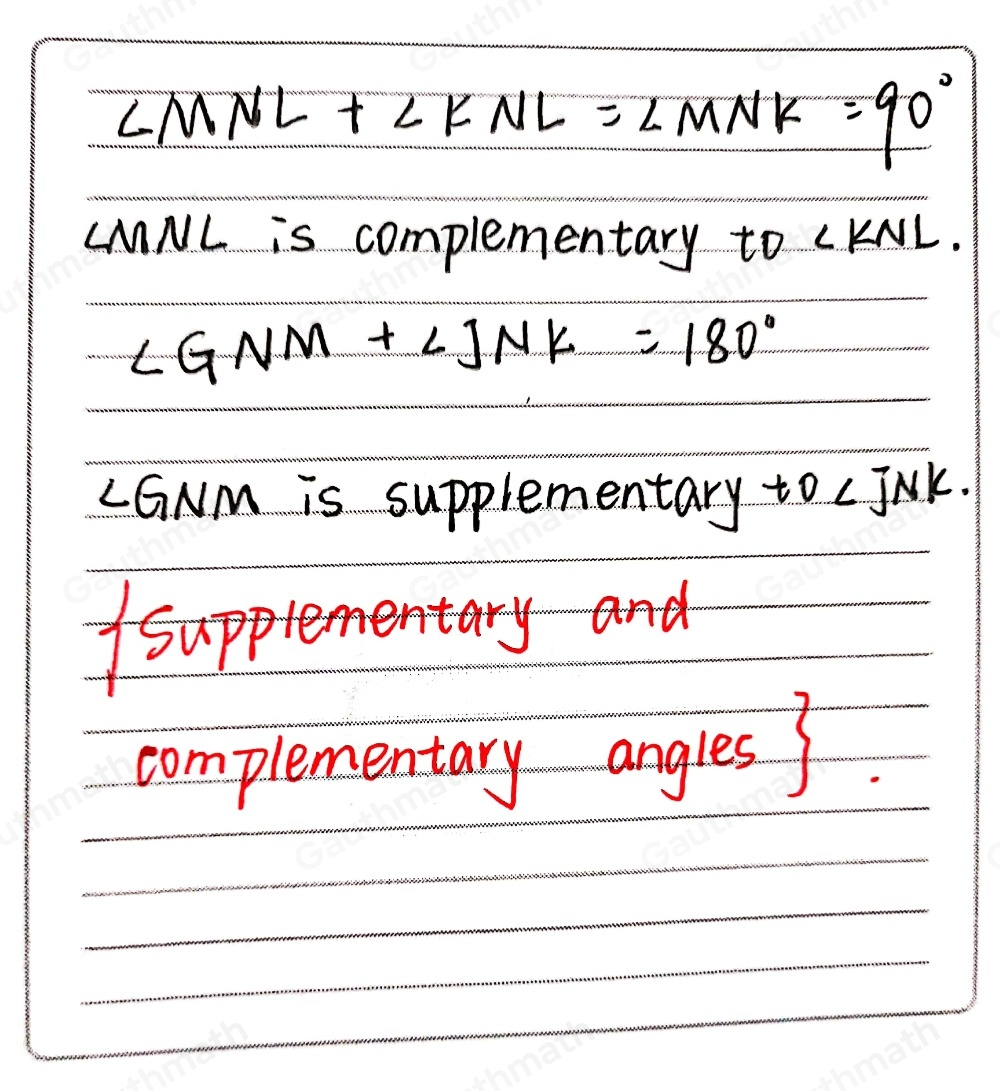 ∠MNL + ∠KNL = ∠MNK = 90°
∠MNL is complementary to ∠KNL.
∠GNM + ∠JNK = 180°
∠GNM is supplementary to ∠JNK.
{Supplementary and
complementary angles}.